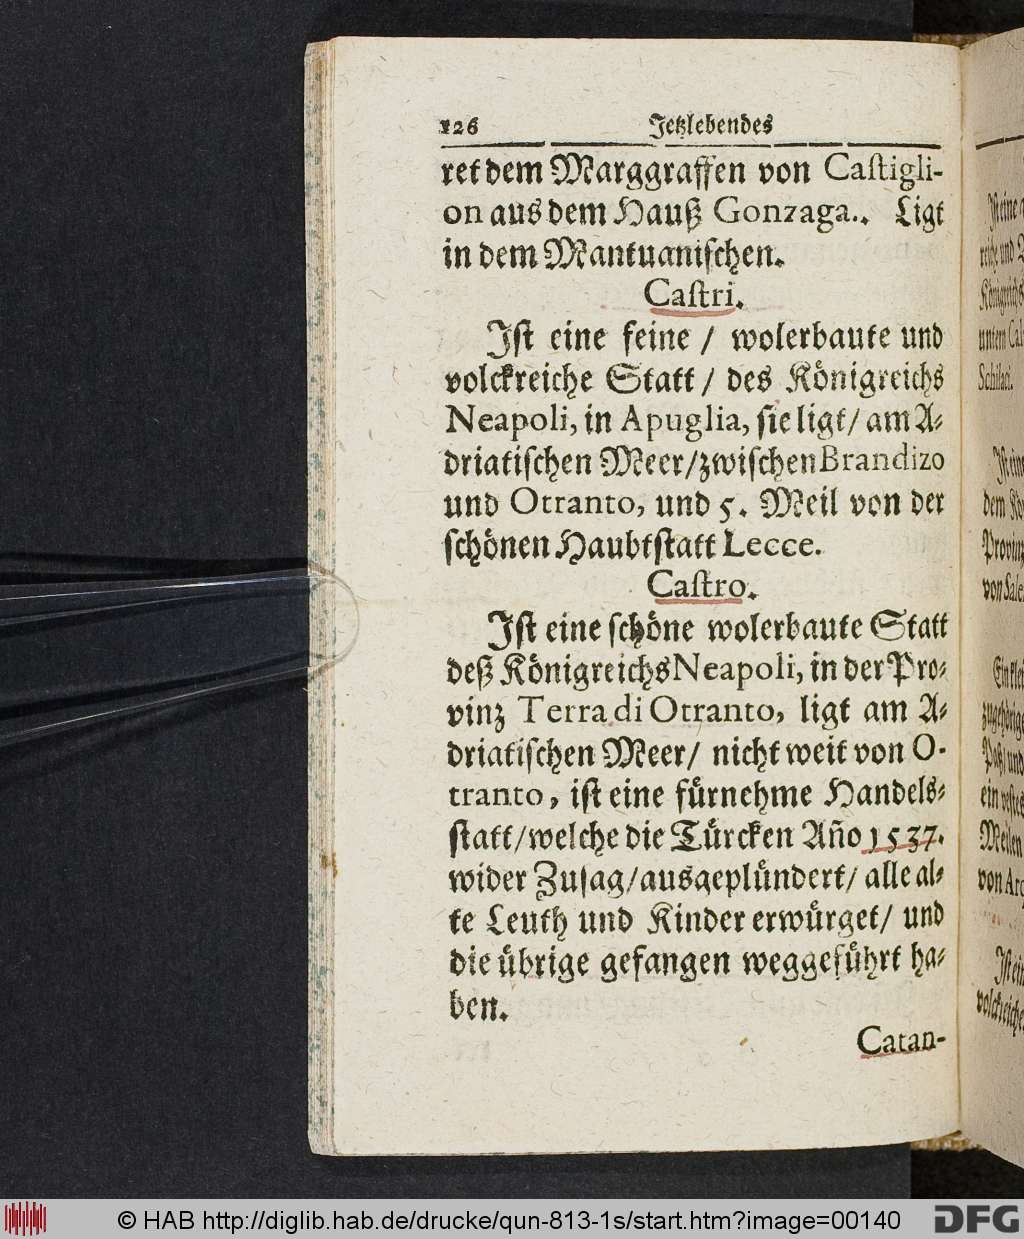 126 Jetzlebendes
ret dem Marggraffen von Caſtigli-
on aus dem Hauß Gonzaga.. Ligt
in dem Mantuaniſchen.
Caſtri.
Iſt eine feine / wolerbaute und
volckreiche Statt / des Königreichs
Neapoli, in Apuglia, ſie ligt / am A-
driatiſchen Meer / zwiſchen Brandizo
und Otranto, und 5. Meil von der
ſchönen Haubtſtatt Lecce.
Caſtro.
Iſt eine ſchöne wolerbaute Statt
deß Königreichs Neapoli, in der Pro-
vinz Terra di Otranto, ligt am A-
driatiſchen Meer / nicht weit von O-
tranto, iſt eine fürnehme Handels-
ſtatt / welche die Türcken Año 1537.
wider Zuſag / ausgeplündert / alle al-
te Leuth und Kinder erwürget / und
die übrige gefangen weggeführt ha-
ben.
Catan-
© HAB http://diglib.hab.de/drucke/qun-813-1s/start.htm?image=00140
DFG